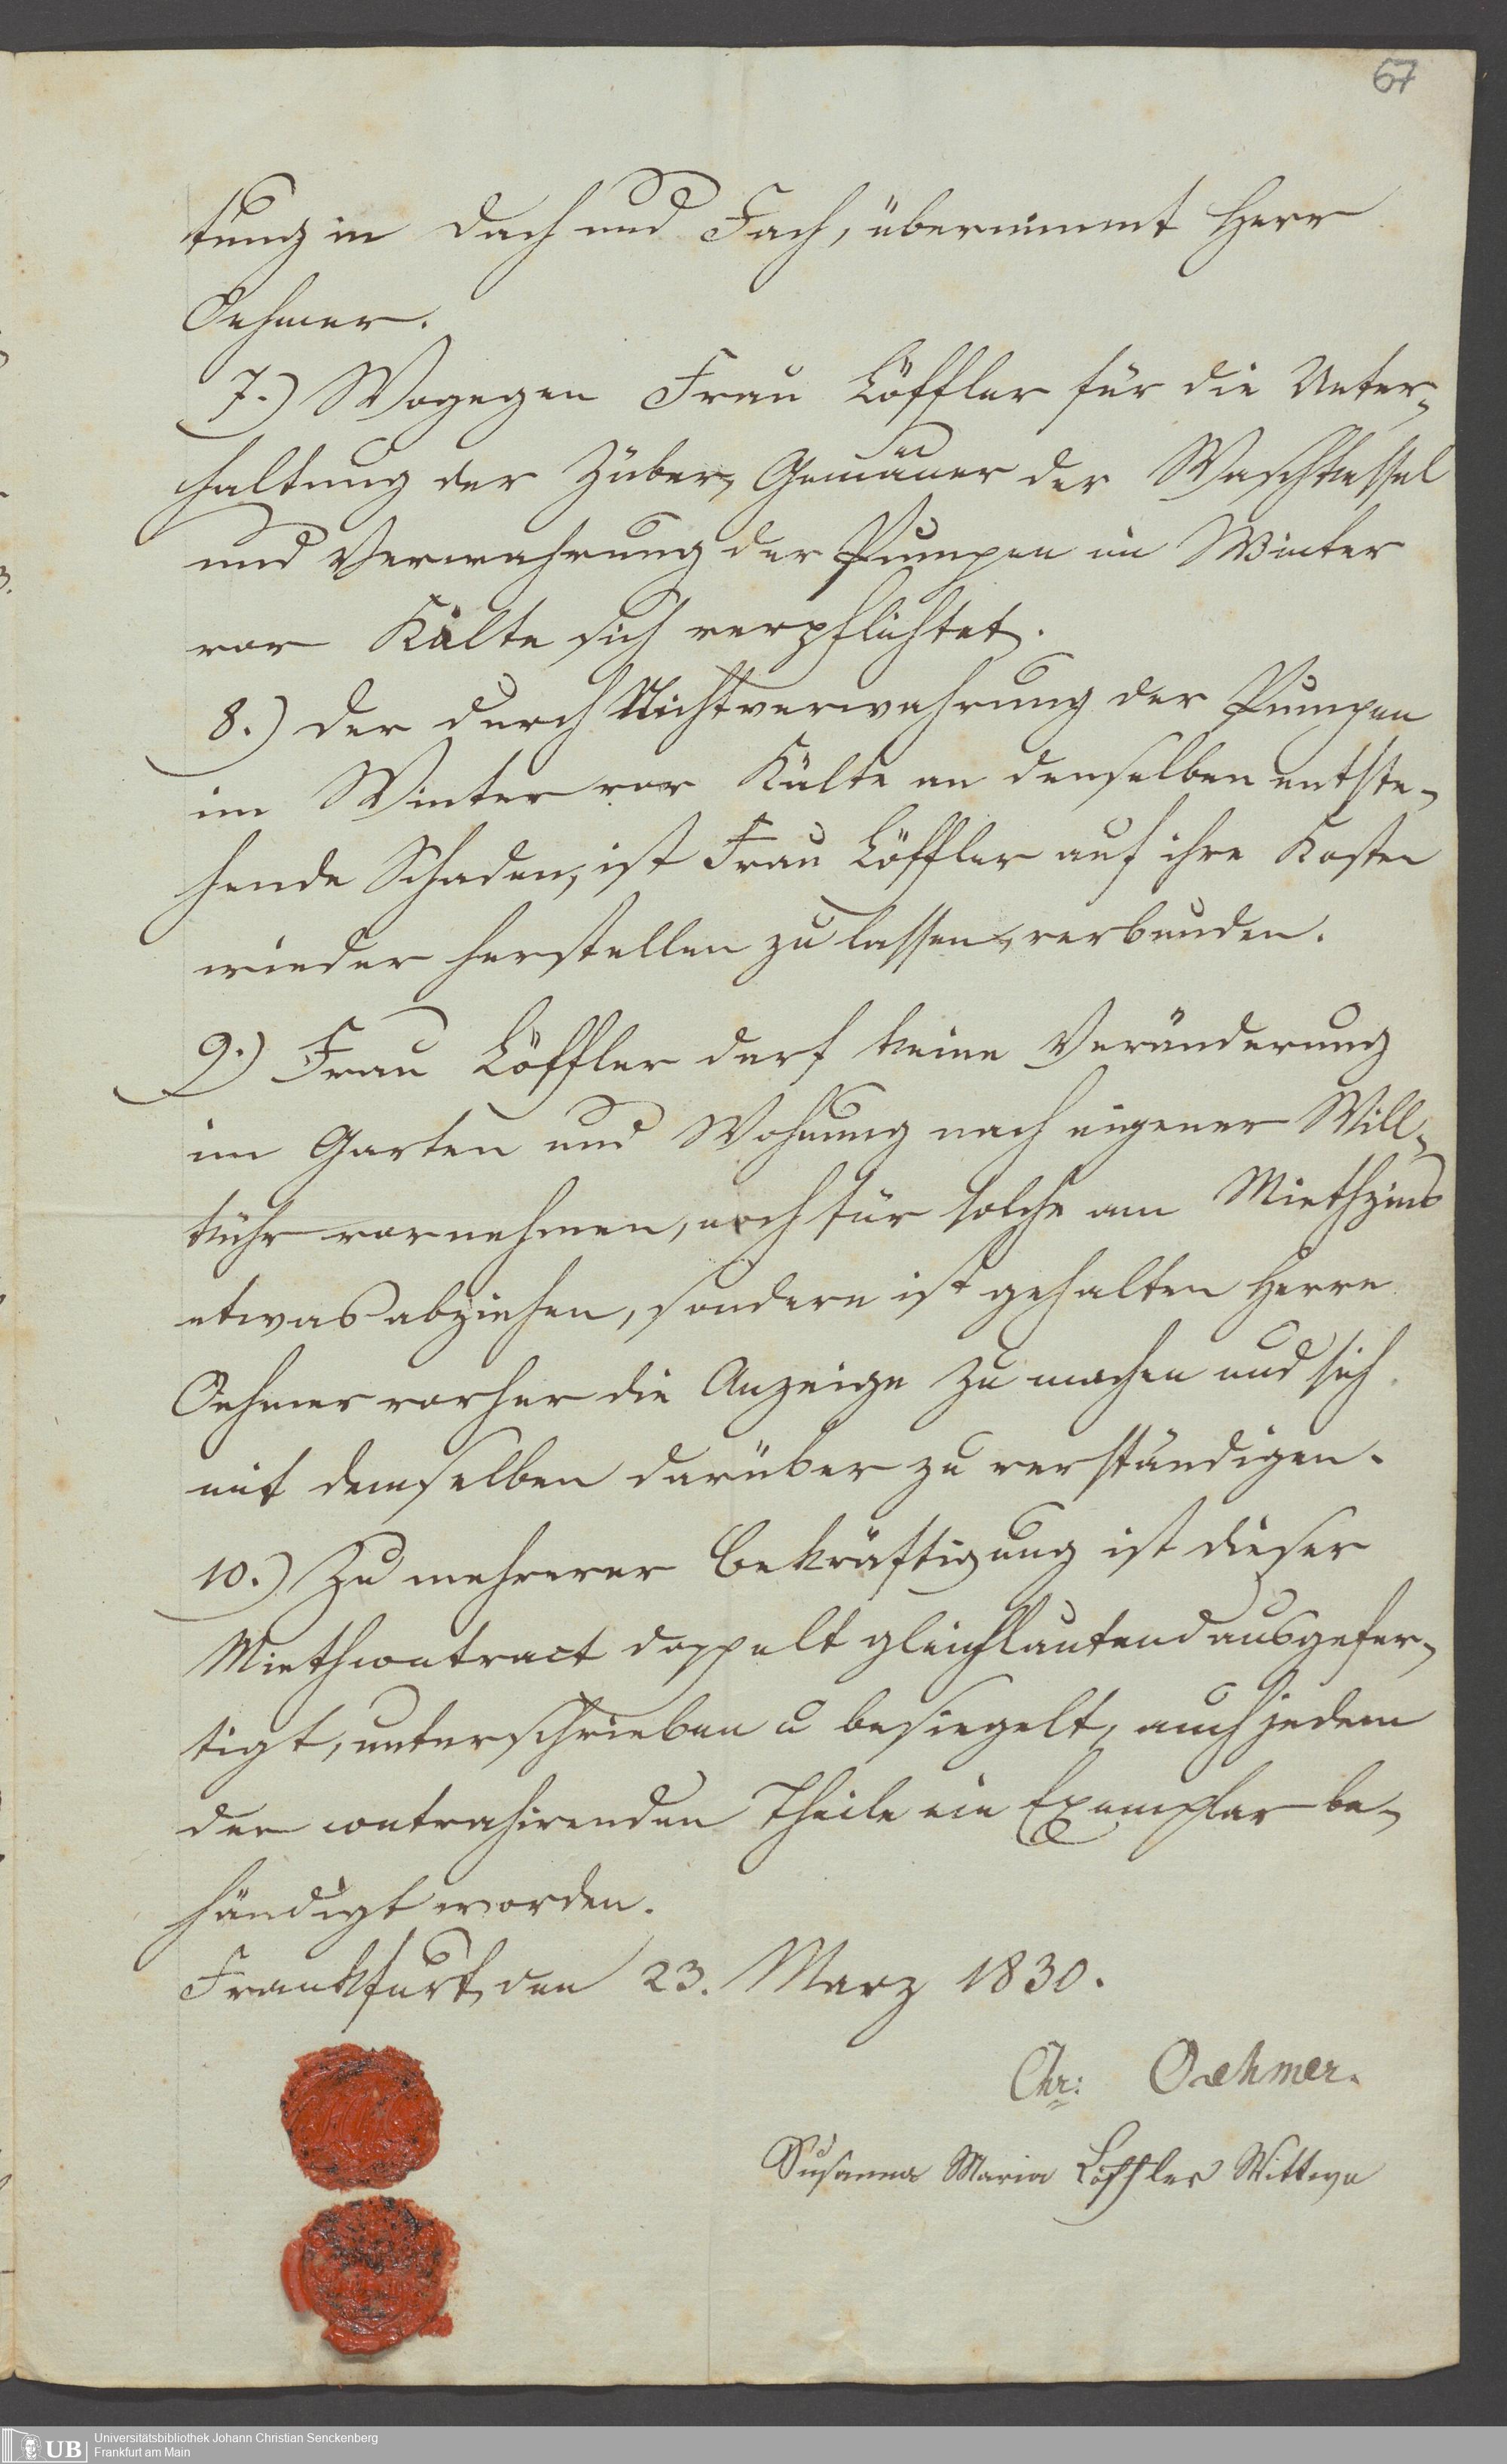 67
tung in Dach und Fach, übernimmt Herr
Oehmer.
7.) Wogegen Frau Löffler für die Unter-
haltung der Züber, Gemäuer der Waschkessel
und Verwahrung der Pumpen im Winter
vor Kälte sich verpflichtet.
8.) Der durch Nichtverwahrung der Pumpen
im Winter vor Kälte an denselben entste-
hende Schaden, ist Frau Löffler auf ihre Kosten
wieder herstellen zu lassen, verbunden.
9.) Frau Löffler darf keine Veränderung
im Garten und Wohnung nach eigener Will-
kühr vornehmen, noch für solche am Miethzins
etwas abziehen, sondern ist gehalten Herrn
Oehmer vorher die Anzeige zu machen und sich
mit demselben darüber zu verständigen.
10.) Zu mehrerer Bekräftigung ist dieser
Miethcontract doppelt gleichlautend ausgefer-
tigt, unterschrieben u besiegelt, auch jedem
der contrahirenden Theile ein Exemplar be-
händigt worden.
Frankfurt, den 23. Marz 1830.
Chr: Oehmer.
Susanna Maria Löffler Wittwe
UB
Universitätsbibliothek Johann Christian Senckenberg
Frankfurt am Main